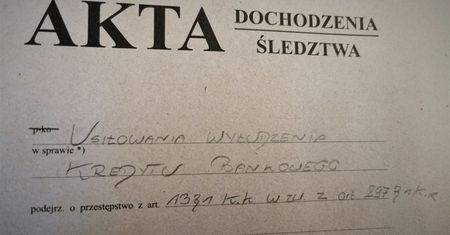 AKTA DOCHODZENIA
ŚLEDZTWA
p-ko USIŁOWANIA WYŁUDZENIA
w sprawie *)
KREDYTU BANKOWEGO
podejrz. o przestępstwo z art. 13§1 k.k w zw z art 297§1 k.k